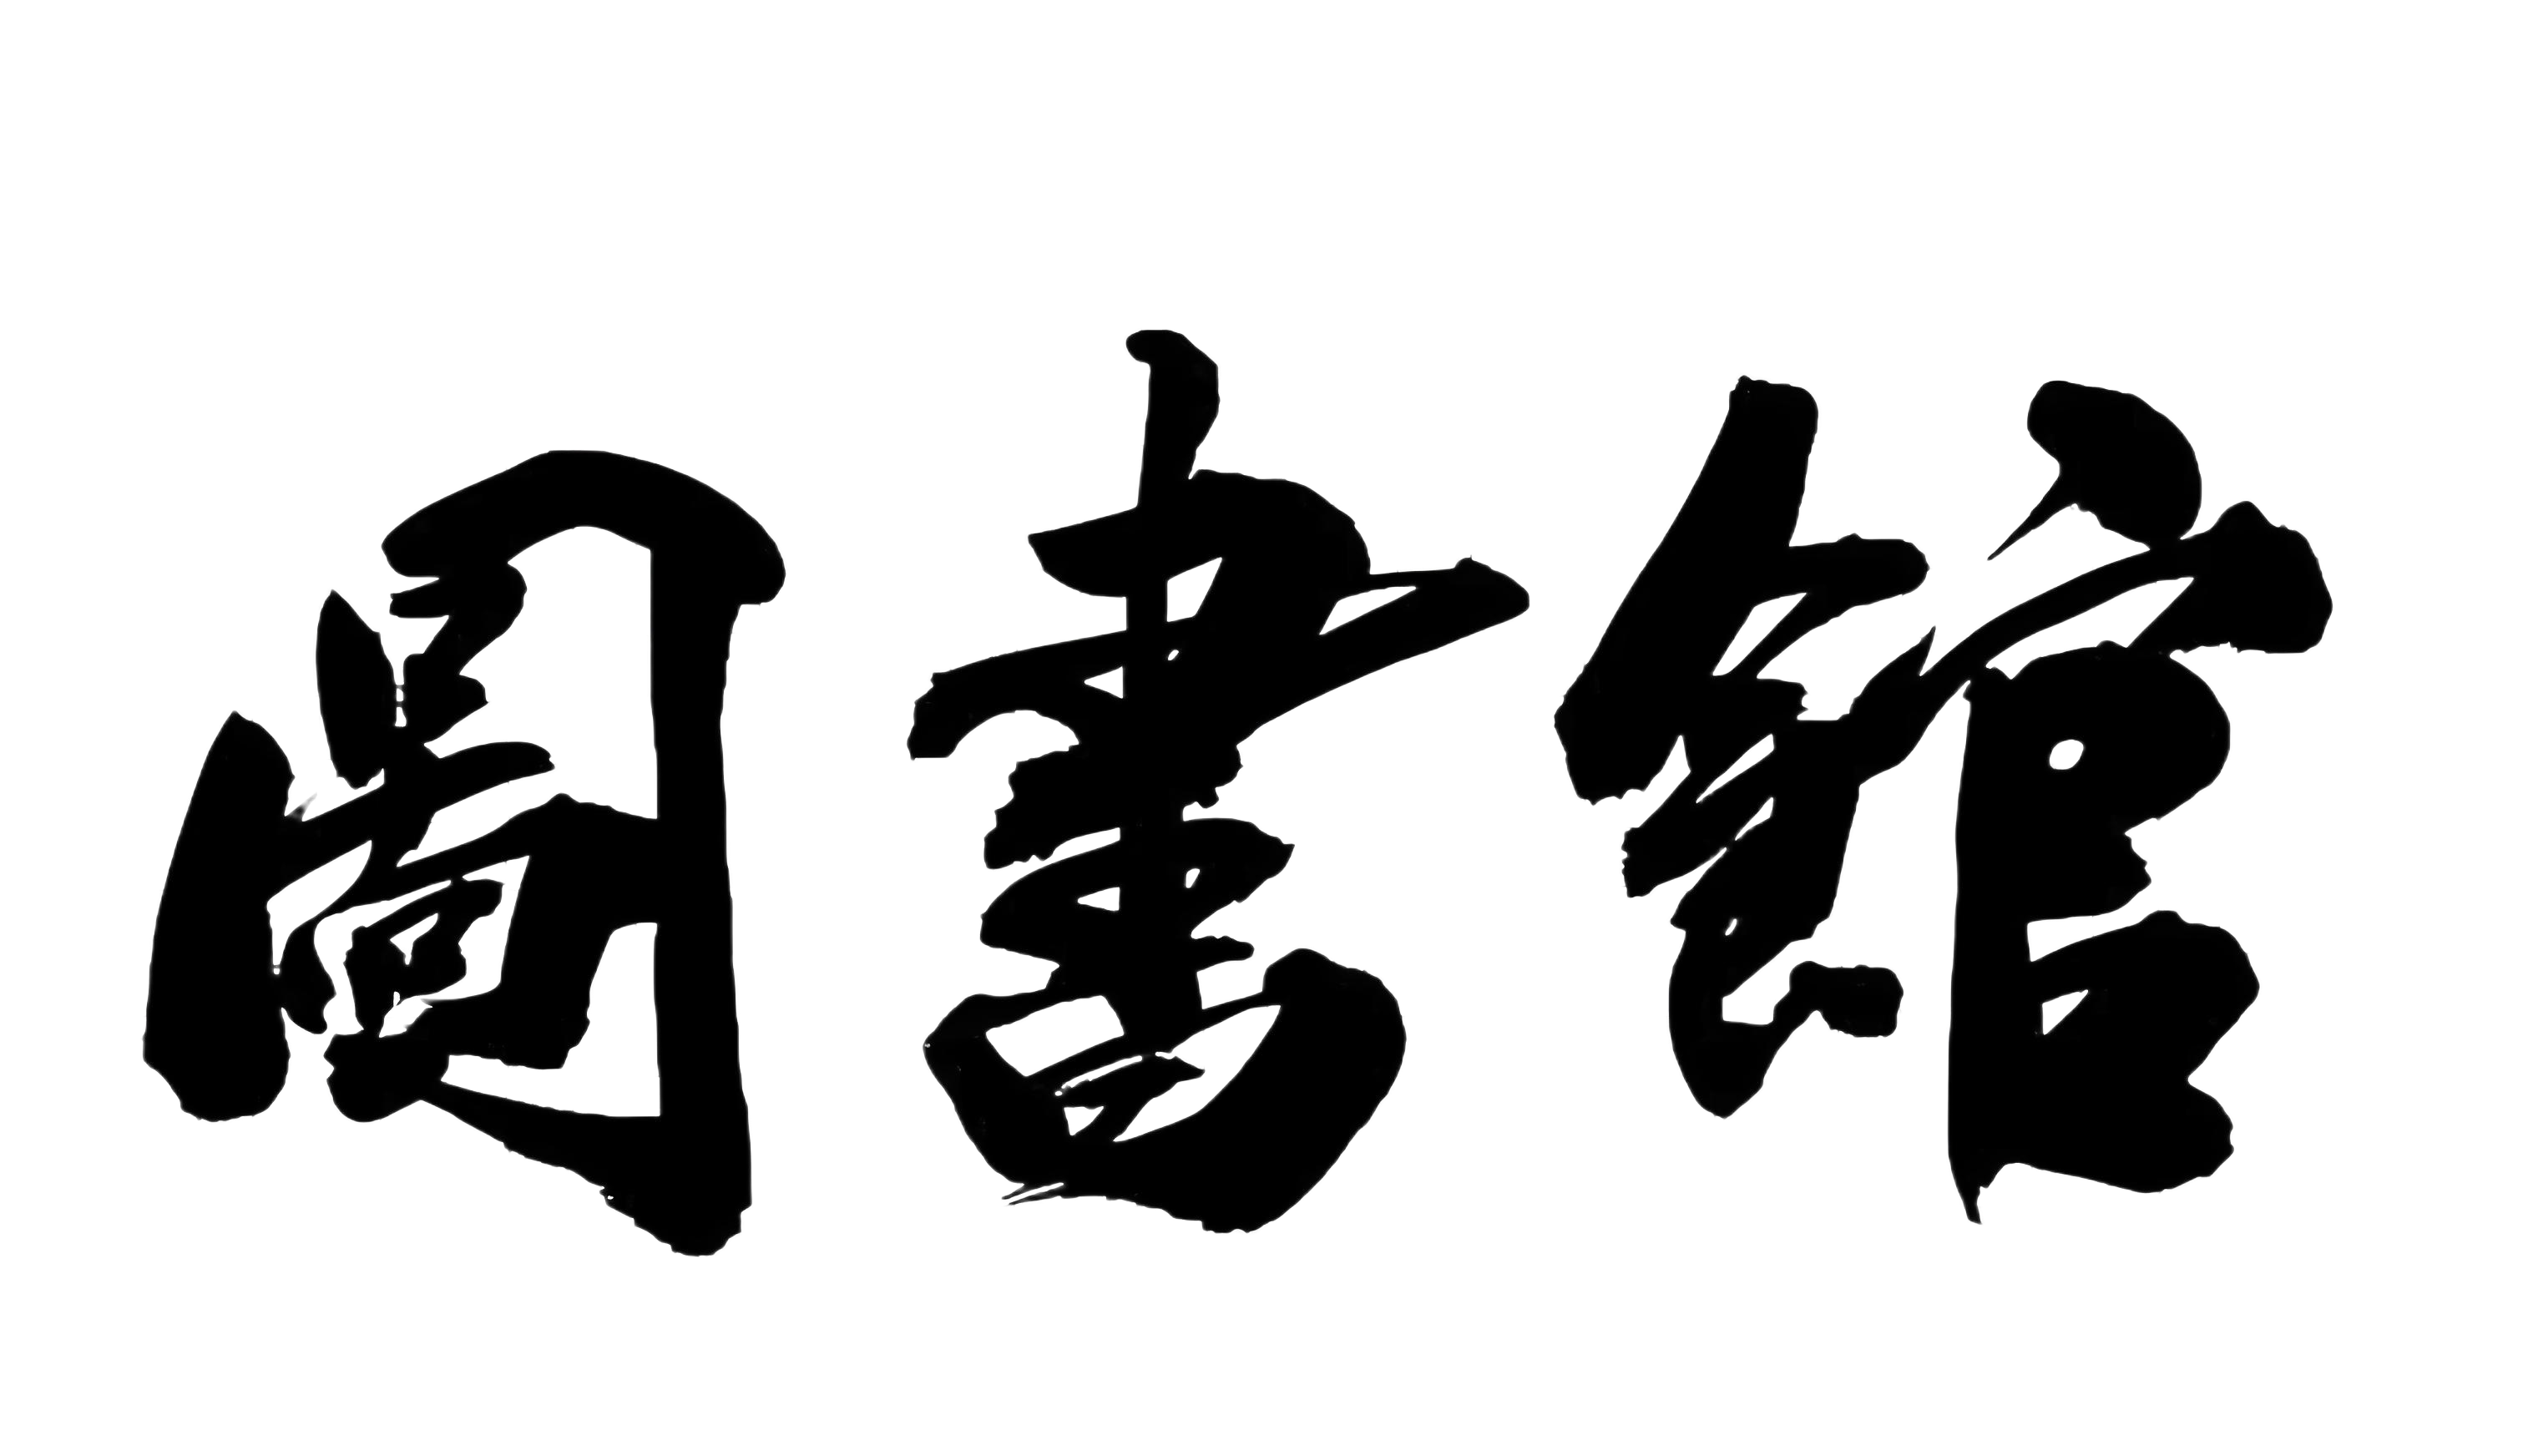 圖書館